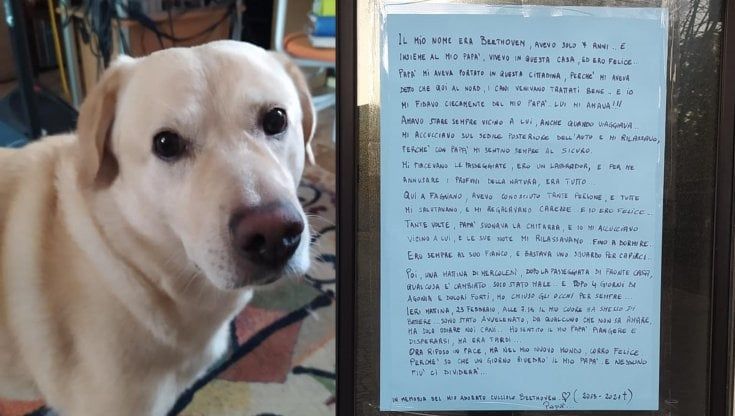 IL MIO NOME ERA BEETHOVEN, AVEVO SOLO 7 ANNI.. E
INSIEME AL MIO PAPA', VIVEVO IN QUESTA CASA, ED ERO FELICE..
PAPA' MI AVEVA PORTATO IN QUESTA CITTADINA, PERCHE' MI AVEVA
DETTO CHE QUI AL NORD, I CANI VENIVANO TRATTATI BENE.. E IO
MI FIDAVO CIECAMENTE DEL MIO PAPA'. LUI MI AMAVA!!!
AMAVO STARE SEMPRE VICINO A LUI, ANCHE QUANDO VIAGGIAVA..
MI ACCUCCIAVO SUL SEDILE POSTERIORE DELL'AUTO E MI RILASSAVO,
PERCHE' CON PAPA' MI SENTIVO SEMPRE AL SICURO.
MI PIACEVANO LE PASSEGGIATE, ERO UN LABRADOR, E PER ME
ANNUSARE I PROFUMI DELLA NATURA, ERA TUTTO...
QUI A FAGNANO, AVEVO CONOSCIUTO TANTE PERSONE, E TUTTE
MI SALUTAVANO, E MI REGALAVANO CAREZZE.. E IO ERO FELICE..
TANTE VOLTE, PAPA' SUONAVA LA CHITARRA, E IO MI ACCUCCIAVO
VICINO A LUI, E LE SUE NOTE MI RILASSAVANO.. FINO A DORMIRE.
ERO SEMPRE AL SUO FIANCO, E BASTAVA UNO SGUARDO PER CAPIRCI..
POI, UNA MATTINA DI MERCOLEDI', DOPO LA PASSEGGIATA DI FRONTE CASA,
QUALCOSA E' CAMBIATO. SONO STATO MALE.. E DOPO 4 GIORNI DI
AGONIA E DOLORI FORTI, HO CHIUSO GLI OCCHI PER SEMPRE...
IERI MATTINA, 23 FEBBRAIO, ALLE 7.14 IL MIO CUORE HA SMESSO DI
BATTERE.. SONO STATO AVVELENATO, DA QUALCUNO CHE NON SA AMARE,
MA SOLO ODIARE NOI CANI.. HO SENTITO IL MIO PAPA' PIANGERE E
DISPERARSI, MA ERA TARDI...
ORA RIPOSO IN PACE, MA NEL MIO NUOVO MONDO, CORRO FELICE
PERCHE' SO CHE UN GIORNO RIVEDRO' IL MIO PAPA'.. E NESSUNO
PIU' CI DIVIDERA'...
IN MEMORIA DEL MIO ADORATO CUCCIOLO BEETHOVEN ♡ (2013-2021†)
PAPA'